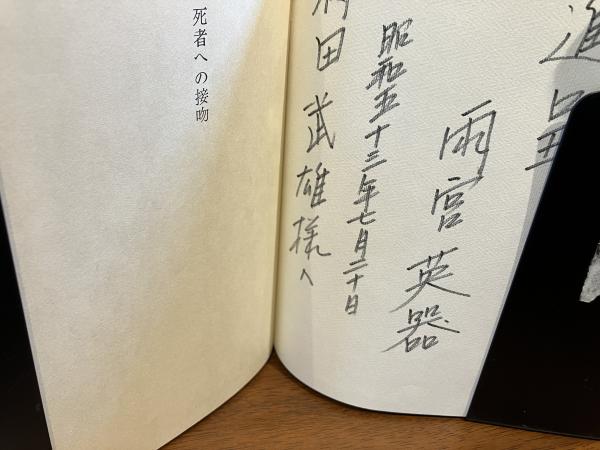 進呈
雨宮英器
昭和五十三年七月二十日
田武雄様へ
死者への接吻